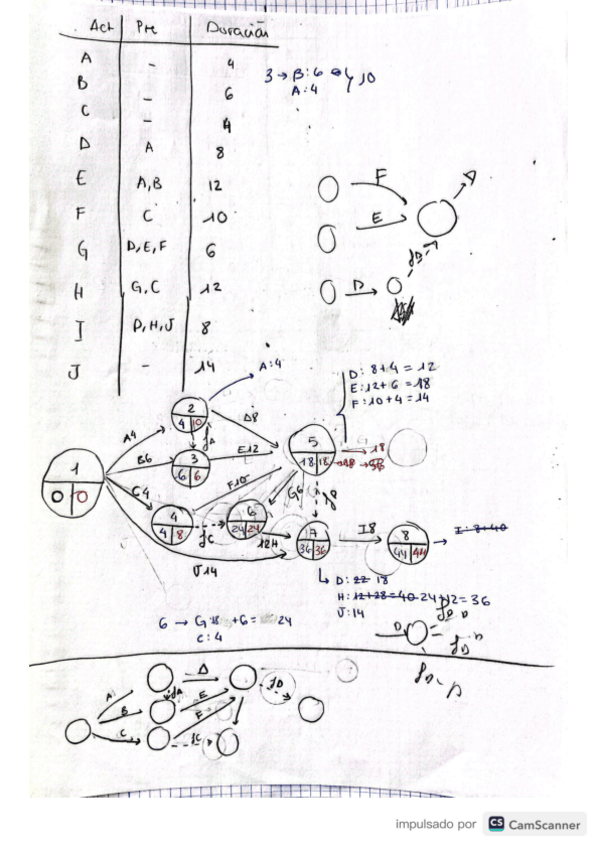 Act Pre Duración
A - 4
B - 6
C - 4
D A 8
E A,B 12
F C 10
G D,E,F 6
H G,C 12
I D,H,J 8
J - 14
3 → B:6 10
A:4
F
E
D
fD
A:4
D: 8+4 = 12
E: 12+6 = 18
F: 10+4 = 14
1
0 0
A4
B6
C4
J14
2
4 10
fA
3
6 6
4
4 8
fC
D8
E12
F10
5
18 18
G 18
G6
fD
6
24 24
12H
7
36 36
I8
8
44 44
I: 8+40
D: 22 18
H: 12+28=40 24+12=36
J:14
6 → G:18 +6= 24
C: 4
D
fD
fD
fD
A
B
C
D
fA
E
F
fC
fD
impulsado por CS CamScanner